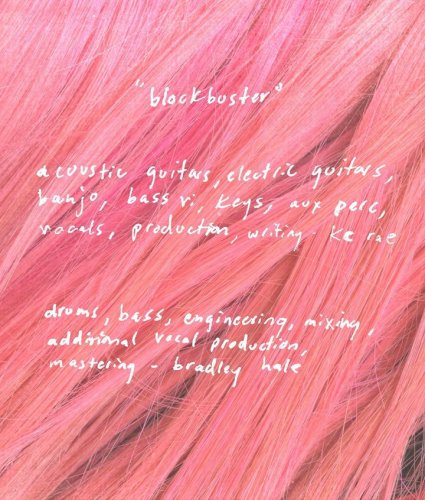 "blockbuster"
acoustic guitars, electric guitars,
banjo, bass vi, keys, aux perc,
vocals, production, writing - kc rae
drums, bass, engineering, mixing,
additional vocal production,
mastering - bradley hale